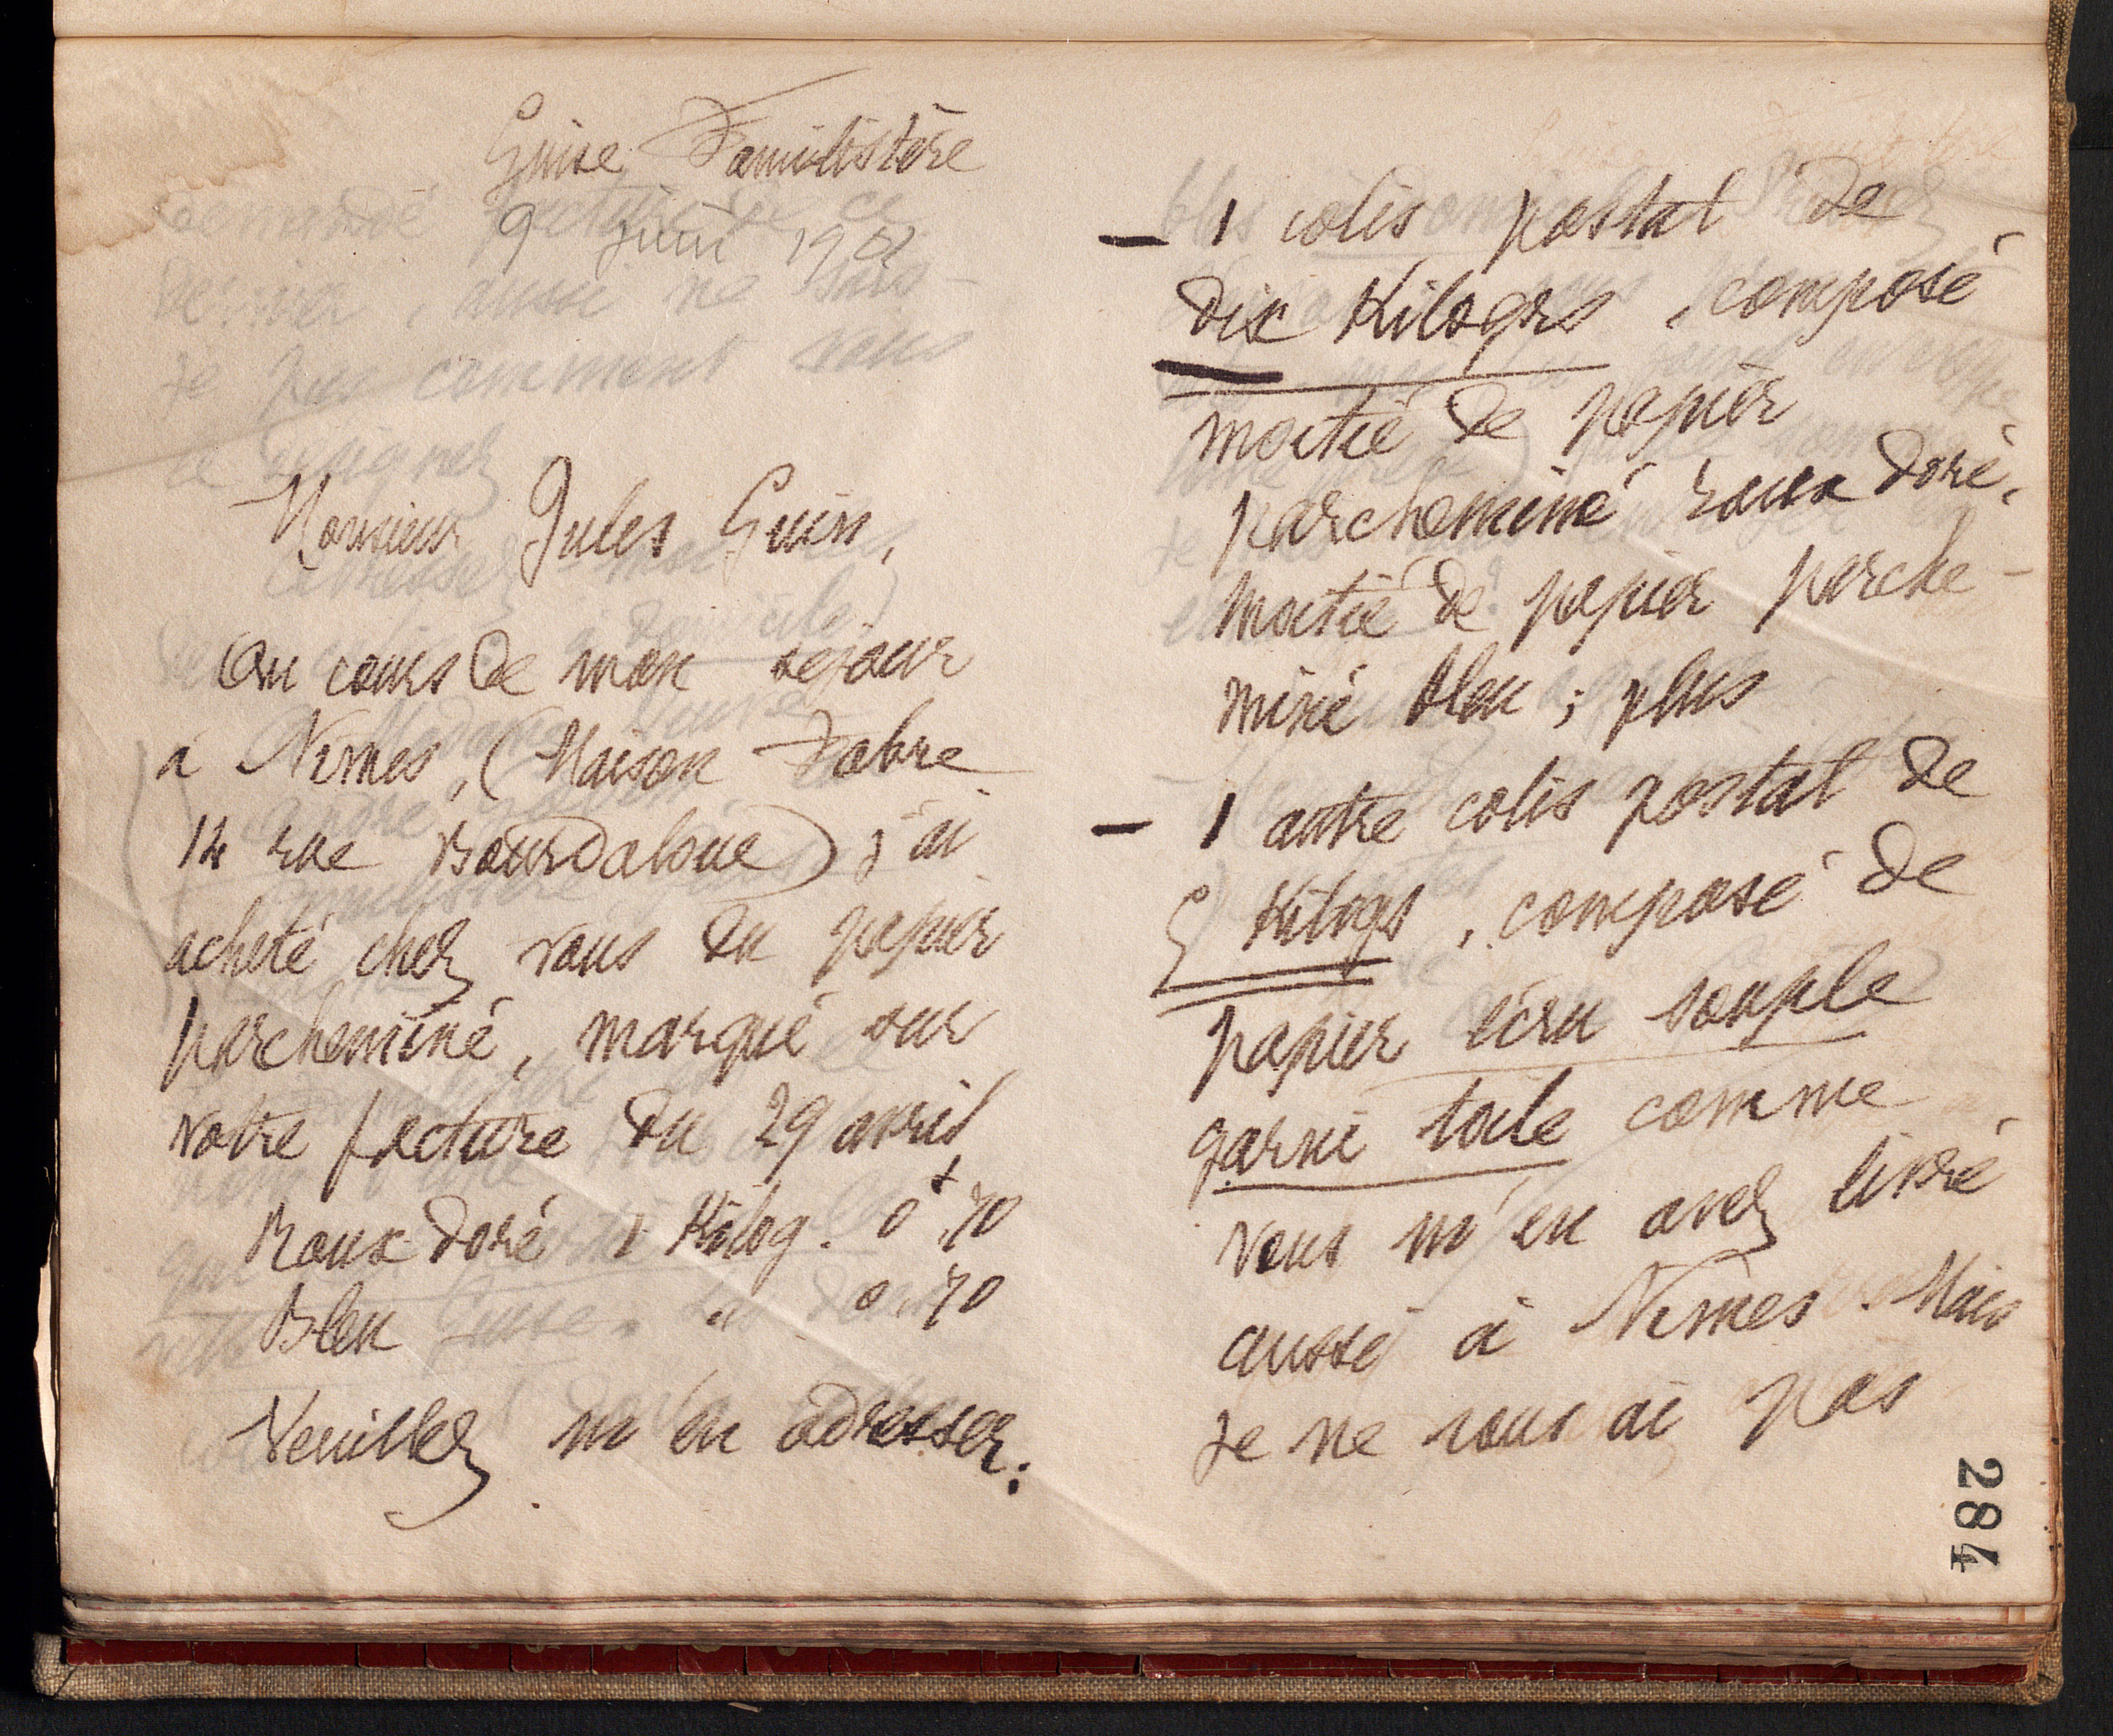 Guise Familistère
9 juin 1901
Monsieur Jules Guin,
Au cours de mon séjour
à Nimes, (Maison Fabre
14 rue Bourdaloue) j'ai
acheté chez vous du papier
parcheminé, marqué sur
votre facture du 29 avril,
Roux doré 1 Kilog. 0f.70
Bleu " 0.70
Veuillez m'en adresser:
– 1 colis postal de
dix Kilogrs, composé
moitié de papier
parcheminé roux doré,
moitié de papier parche-
miné bleu; plus
– 1 autre colis postal de
5 Kilogs, composé de
papier écru souple
garni toile comme
vous m'en avez livré
aussi à Nimes. Mais
je ne vous ai pas
284